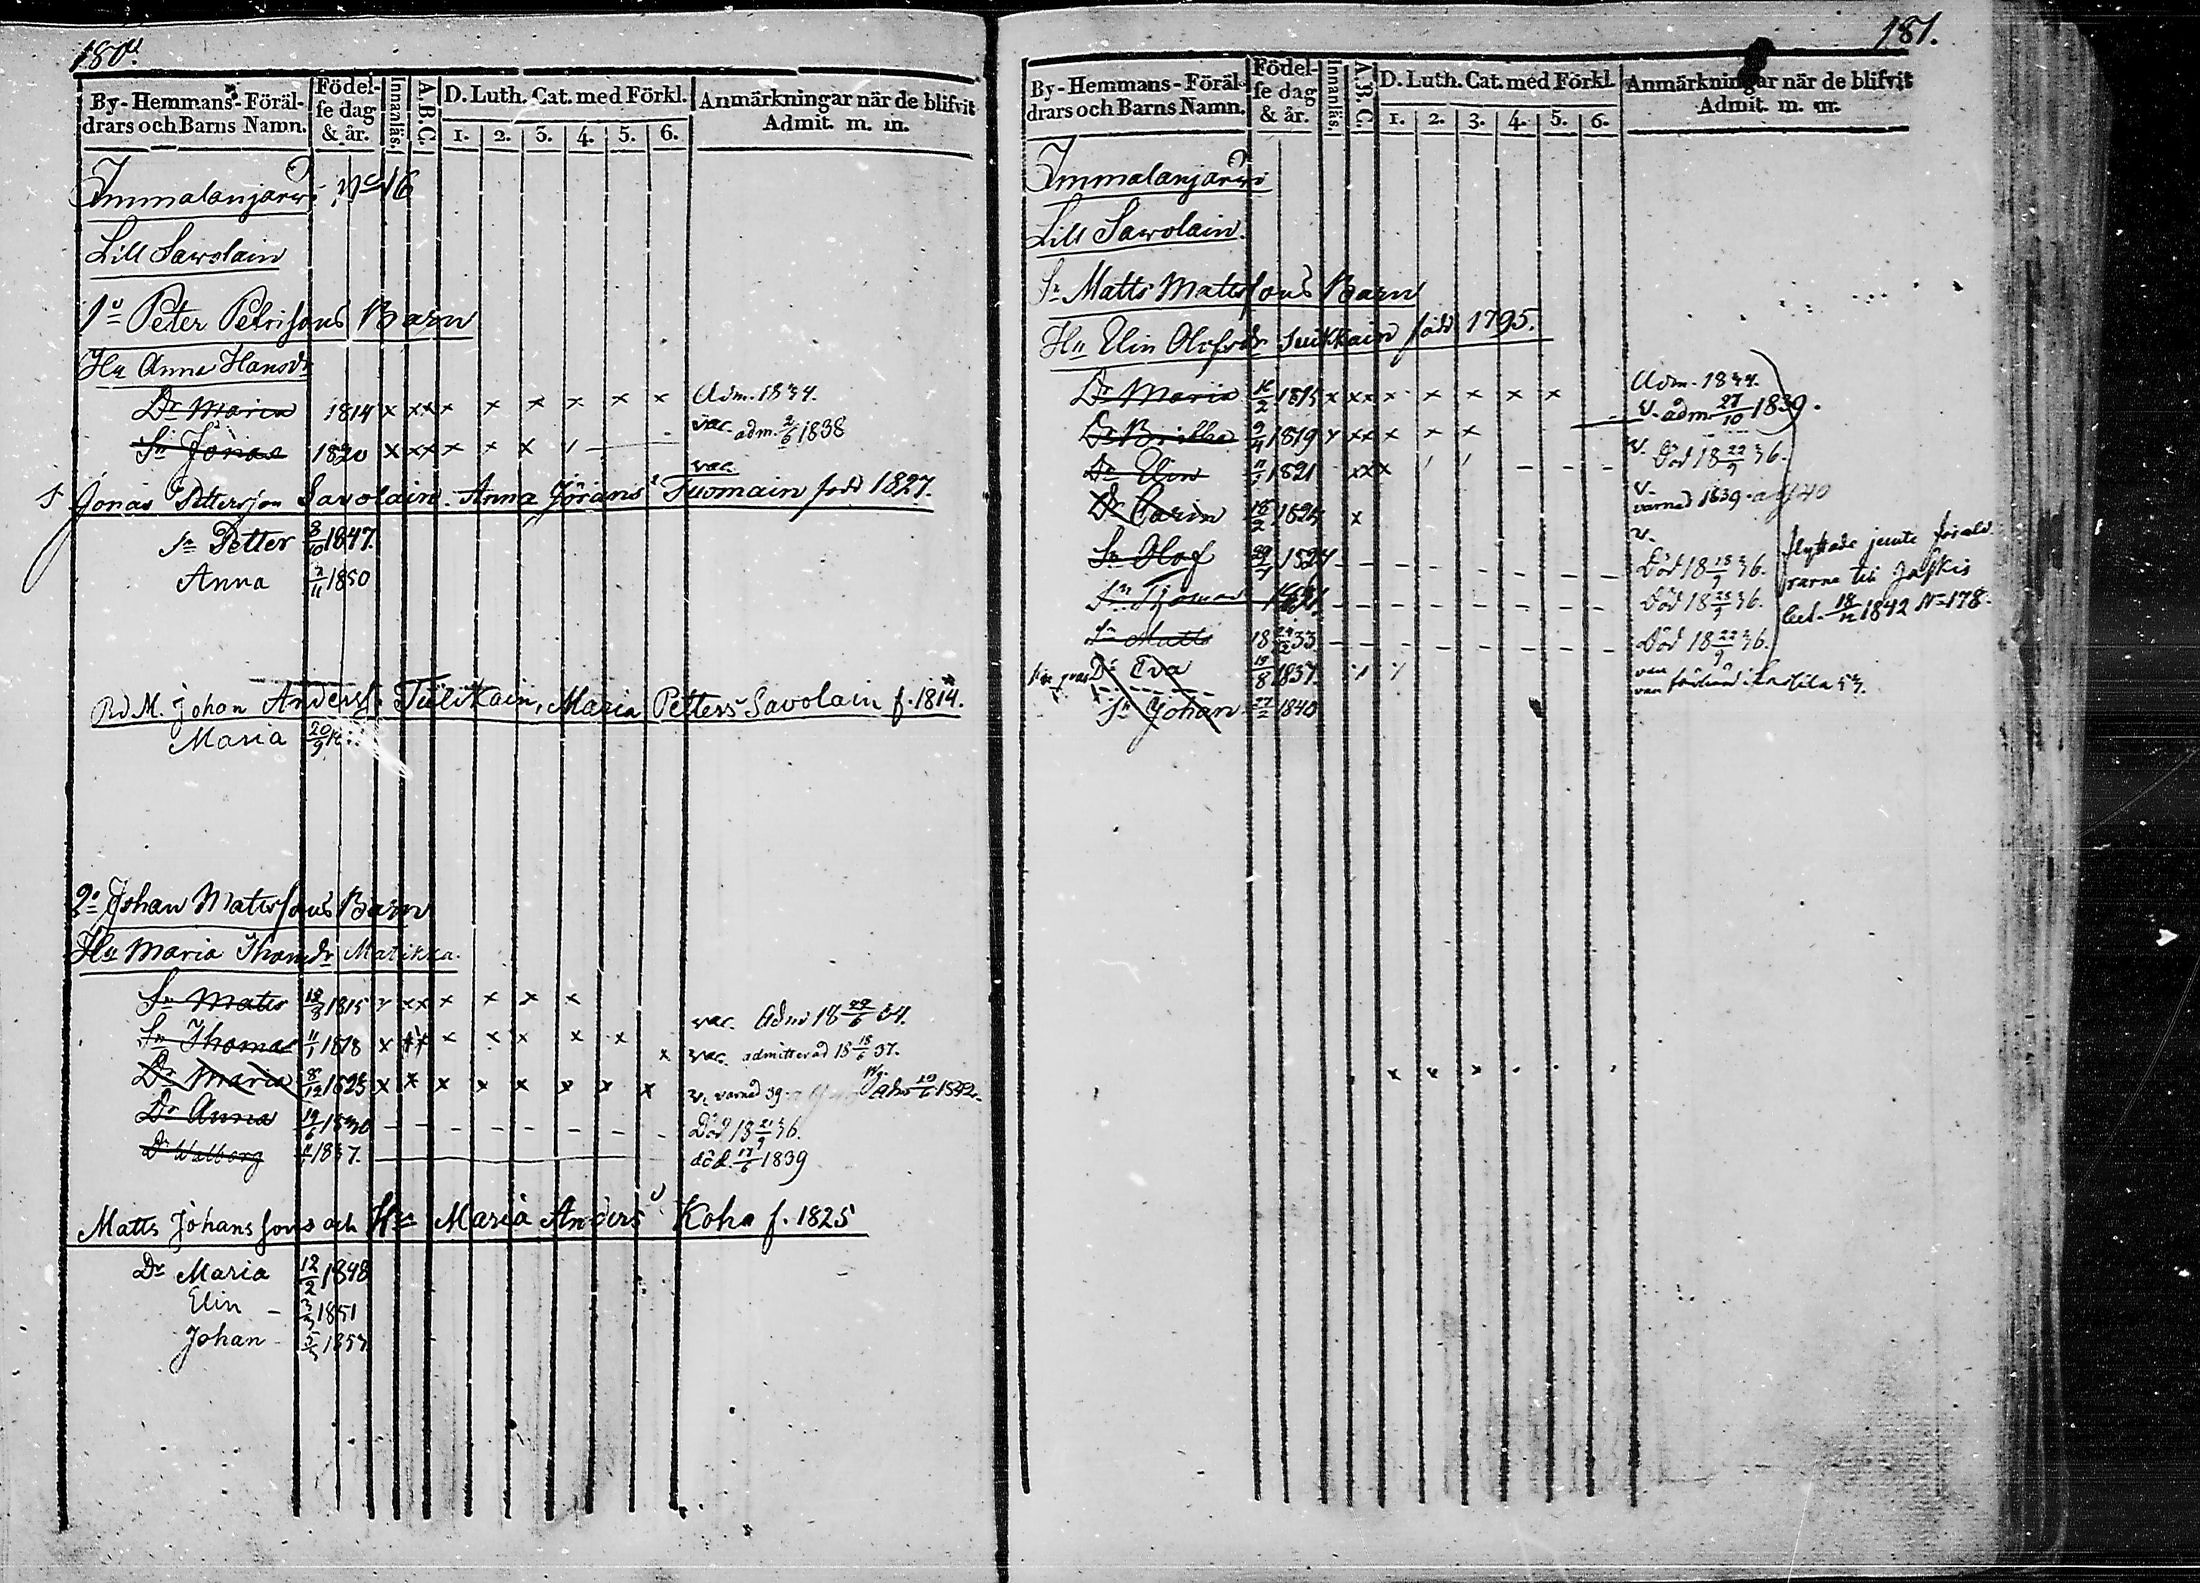 180.
By-Hemmans-Föräl-
drars och Barns Namn.
Födel-
se dag
& år.
Innanläs.
A.B.C.
D. Luth. Cat. med Förkl.
1. 2. 3. 4. 5. 6.
Anmärkningar när de blifvit
Admit. m. m.
Immalanjarwi No 16
Lill Sawolain
1o Peter Petrisons Barn
Hu Anna Hansdr
Dr Maria 1814 x xx x x x x x x Adm. 1834.
Sn Jonas 1820 x xx x x x vac. adm. 2/6 1838
vac.
Jonas Pettersson Savolain. Anna Görans Tuomain född 1827.
Sn Petter 8/10 1847.
Anna 2/11 1850
Johan Anders. Tulikain, Maria Petters Savolain f. 1814.
Maria 20/9
2o Johan Matssons Barn
Hu Maria Thomdr Matikka.
Sn Matts 1815 x xx x x x x vac. Adm 18 22/6 34.
Sn Thomas 11/1 1818 x x x x x x x x vac. admitterad 18 18/6 37.
Dr Maria 8/12 1825 x x x x x x x x v. varnad 39. adm 19/6 1842.
Dr Anna 19/6 1830 - - - - - - - - Död 18 21/9 36.
Dr Walborg 1837. död. 17/6 1839
Matts Johanssons och Hu Maria Anders Koho f. 1825
Dr Maria 12/2 1848
Elin - 1851
Johan - 1857
181.
By-Hemmans-Föräl-
drars och Barns Namn.
Födel-
se dag
& år.
Innanläs.
A.B.C.
D. Luth. Cat. med Förkl.
1. 2. 3. 4. 5. 6.
Anmärkningar när de blifvit
Admit. m. m.
Immalanjarwi
Lill Sawolain.
Sn Matts Mattssons Barn
Hu Elin Olofsdr Suikkain född 1795.
Dr Maria 1815 x xx x x x x x Adm. 1834.
Dr Britta 9/4 1819 x xx x x x v. adm 27/10 1839.
Dr Elin 1821 xx x v. Död 18 22/9 36.
Dr Carin 18/2 1825 x v. varnad 1839
v.
Sn Olof 1827 - - - - - - - Död 18 18/9 36.
Sn Thomas - - - - - - - Död 18 36.
Sn Matts 18 33 - - - - - - - Död 18 22/9 36.
flyttade jemte föräld-
rarne till Jäskis
bet. 18/12 1842 No 178.
Dr Eva 19/8 1837.
Sn Johan 27/2 1840